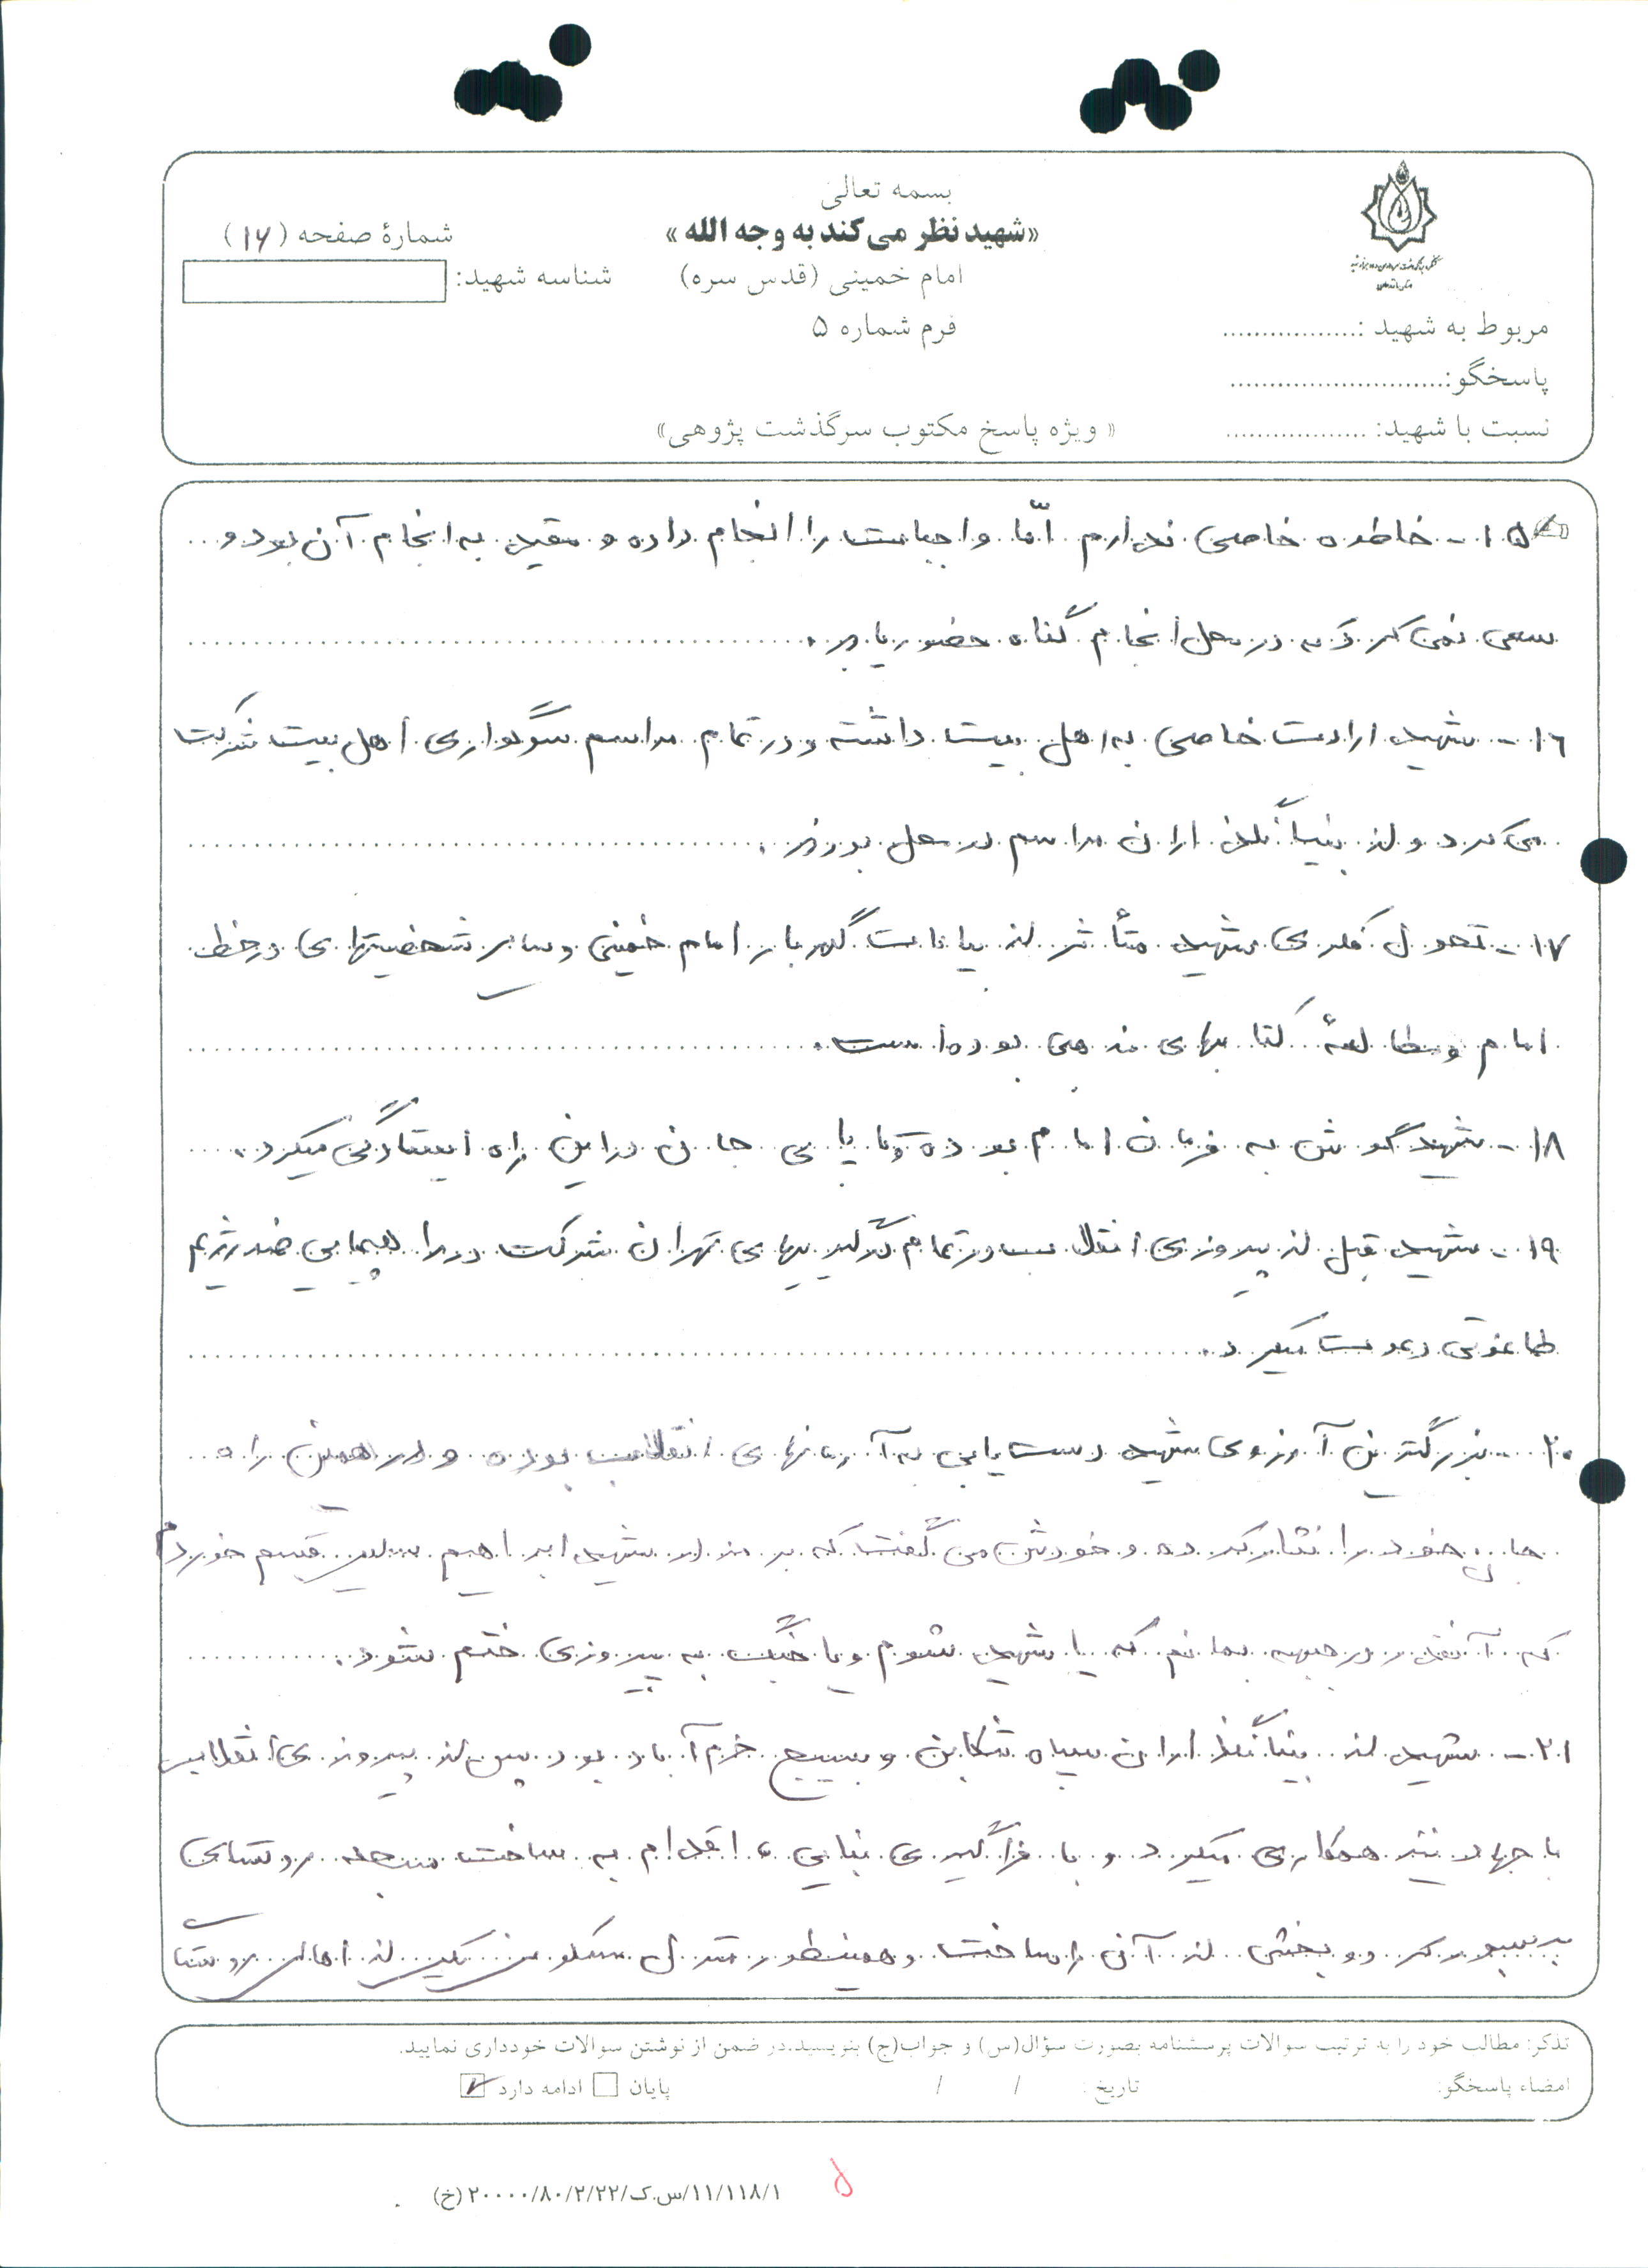 بسمه تعالی
«شهید نظر می‌کند به وجه الله»
شمارهٔ صفحه (۱۶)
امام خمینی (قدس سره)
شناسه شهید:
فرم شماره ۵
مربوط به شهید :.................
پاسخگو:............................
نسبت با شهید: ..................
« ویژه پاسخ مکتوب سرگذشت پژوهی»
۱۵- خاطره خاصی ندارم امّا واجبات را انجام داده و مقید به انجام آن بود و
سعی نمی کرد که در محل انجام گناه حضور یابد.
۱۶- شهید ارادت خاصی به اهل بیت داشته و در تمام مراسم سوگواری اهل بیت شرکت
می کرد و از بنیانگذاران مراسم در محل بودند.
۱۷- تحول فکری شهید متأثر از بیانات گهربار امام خمینی و سایر شخصیتهای در خط
امام و مطالعهٔ کتابهای مذهبی بوده است.
۱۸- شهید گوش به فرمان امام بوده و تا پای جان در این راه ایستادگی میکرد.
۱۹- شهید قبل از پیروزی انقلاب در تمام درگیریهای تهران شرکت در راهپیمایی ضد رژیم
طاغوتی دعوت میکرد.
۲۰- بزرگترین آرزوی شهید دستیابی به آرمانهای انقلاب بوده و در همین راه
جان خود را نثار کرده و خودش می گفت که بر مزار شهید ابراهیم قسم خوردم
که آنقدر در جبهه بمانم که یا شهید شوم و یا جنگ به پیروزی ختم شود.
۲۱- شهید از بنیانگذاران سپاه تنکابن و بسیج خرم آباد بود پس از پیروزی انقلاب
با جهاد نیز همکاری میکرد و با فراگیری بنایی، اقدام به ساخت مسجد روستای
و بخشی از آن را ساخت و همینطور منزل از اهالی روستا
تذکر: مطالب خود را به ترتیب سوالات پرسشنامه بصورت سؤال(س) و جواب(ج) بنویسید.در ضمن از نوشتن سوالات خودداری نمایید.
امضاء پاسخگو:
تاریخ : / /
پایان ادامه دارد
۵
۲۰۰۰۰/۸۰/۲/۲۲/س.ک/۱۱/۱۱۸/۱ (خ)